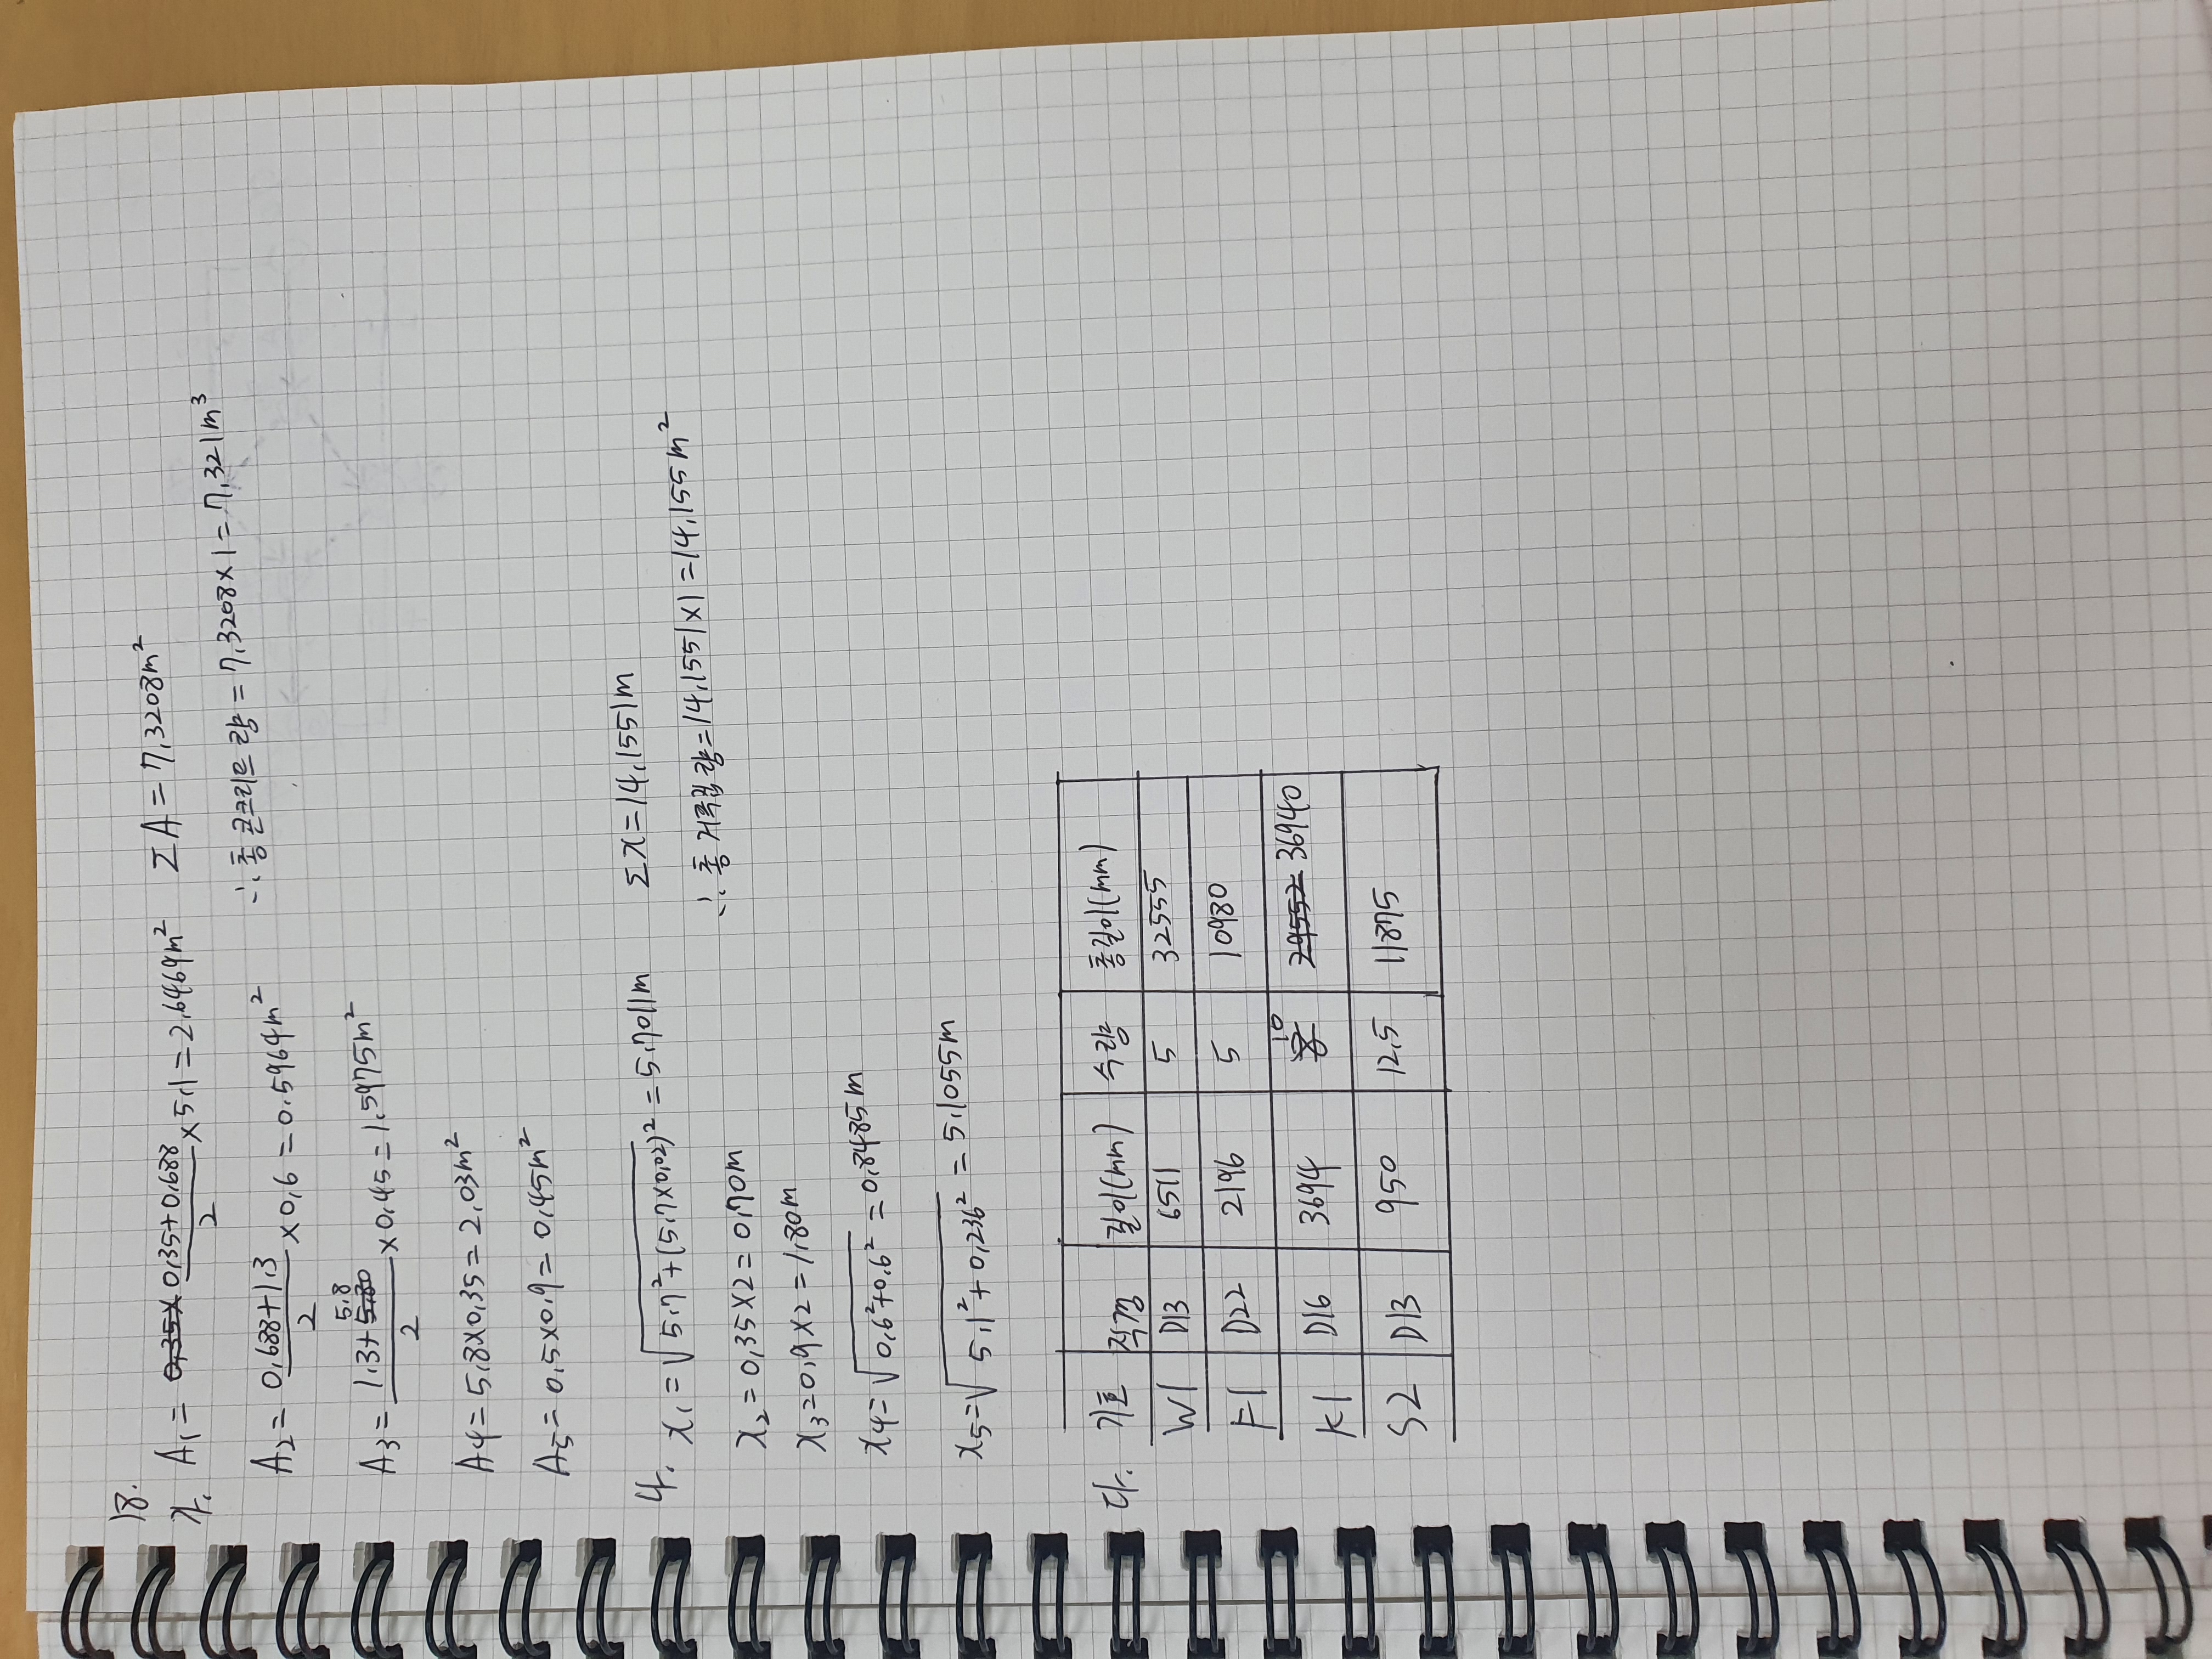 18.
가. A₁ = 0.35+0.688/2 ×5.1 = 2.6469m²  ΣA = 7.3208m²
A₂ = 0.688+1.3/2 ×0.6 = 0.5964m²  ∴ 총 콘크리트량 = 7.3208×1 = 7.321m³
A₃ = 1.3+5.8/2 ×0.45 = 1.5975m²
A4 = 5.8×0.35 = 2.03m²
A₅ = 0.5×0.9 = 0.45m²
나. x₁ = √5.7²+(5.7×0.02)² = 5.7011m  Σx = 14.1551m
x₂ = 0.35×2 = 0.70m  ∴ 총 거푸집량 = 14.1551×1 = 14.155m²
x₃ = 0.9×2 = 1.80m
x4 = √0.6²+0.6² = 0.8485m
x₅ = √5.1²+0.236² = 5.1055m
다. 기호 직경 길이(mm) 수량 총길이(mm)
W1 D13 6511 5 32555
F1 D22 2196 5 10980
K1 D16 3694 10 29552 36940
S2 D13 950 12.5 11875